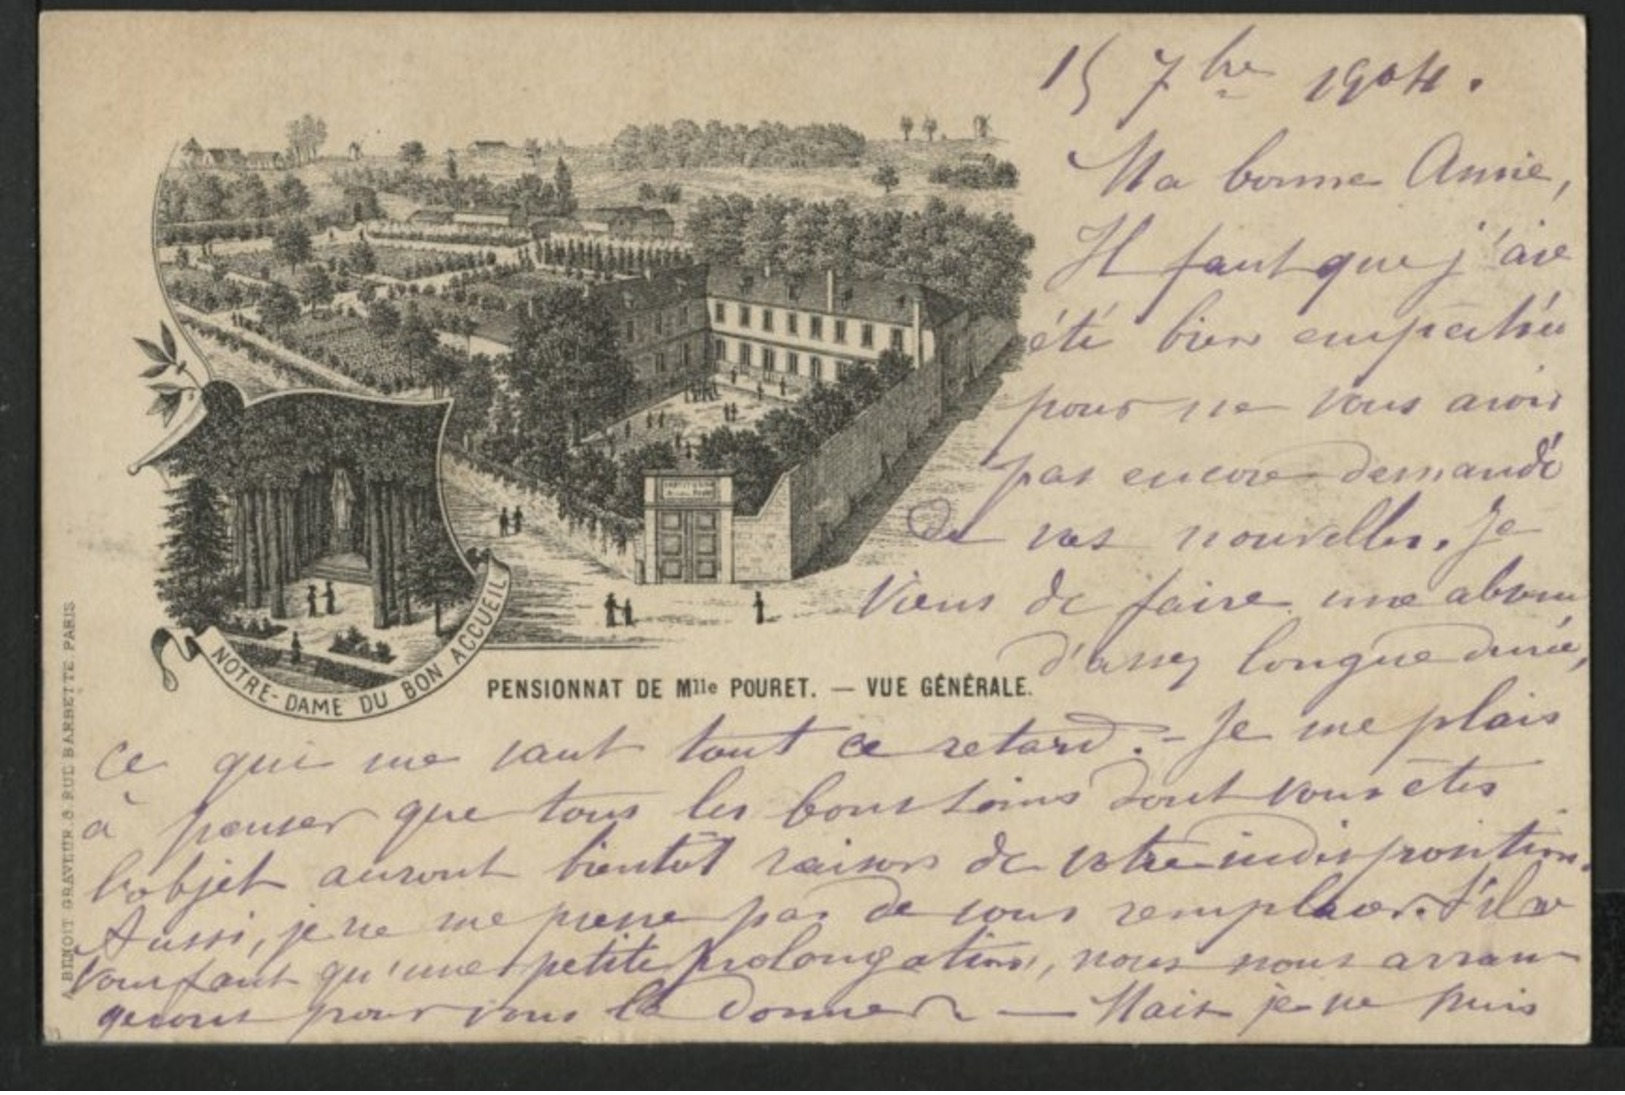 15 7bre 1904.
Ma bonne Annie,
Il faut que j'aie
été bien empêchée
pour ne vous avoir
pas encore demandé
de vos nouvelles. Je
viens de faire une absence
d'assez longue durée,
ce qui me vaut tout ce retard. - Je me plais
à penser que tous les bons soins dont vous êtes
l'objet auront bientôt raison de votre indisposition.
Aussi, je ne me presse pas de vous remplacer. S'il ne
vous faut qu'une petite prolongation, nous nous arran
gerons pour vous la donner — Mais je ne puis
INSTITUTION
NOTRE-DAME DU BON ACCUEIL
PENSIONNAT DE Mlle POURET. — VUE GÉNÉRALE.
A. BENOIT GRAVEUR. 8 RUE BARBETTE. PARIS